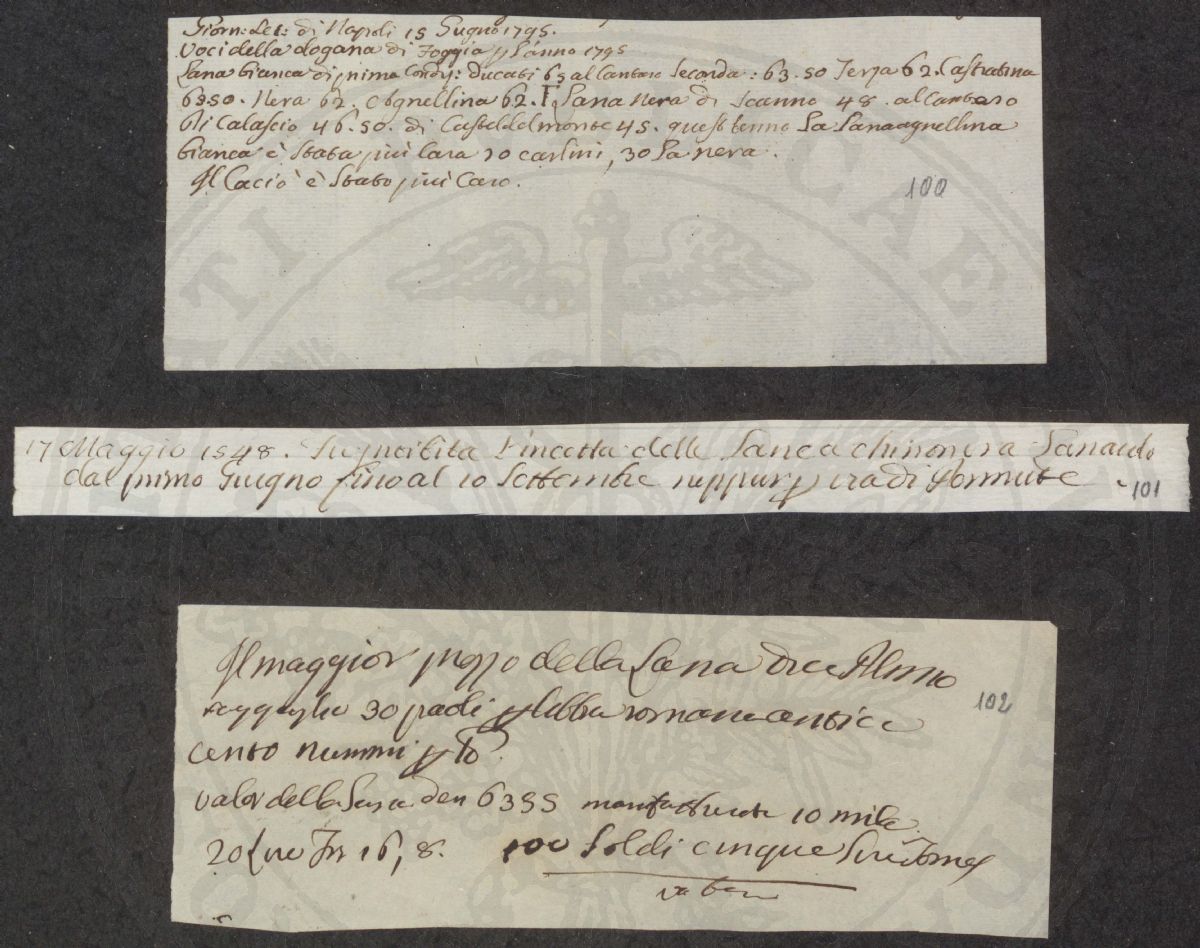 Giorn: Let: di Napoli 15 Giugno 1795.
Voci della dogana di Foggia p l'anno 1795
Lana bianca di prima Condi: ducati 65 al Cantaro Seconda: 63.50 Terza 62. Castratina
6250. Nera 62. Agnellina 62. Lana nera di Scanno 48. al Cantaro
di Calascio 46.50. di Castel del monte 45. quest'anno La Lana agnellina
bianca è stata più Cara 20 carlini, 30 la nera.
Il Cacio è stato più Caro.
100
17 Maggio 1548. proibita l'incetta delle Lane a chi non era Lanaiolo
dal primo Giugno fino al 10 Settembre neppur p via di permute
101
Il maggior prezzo della Lana dice Plinio
30 paoli p libbra romana antica
102
cento nummi p
valor della Lana den 6355 10 mila
20 16, 8. 100 Soldi cinque